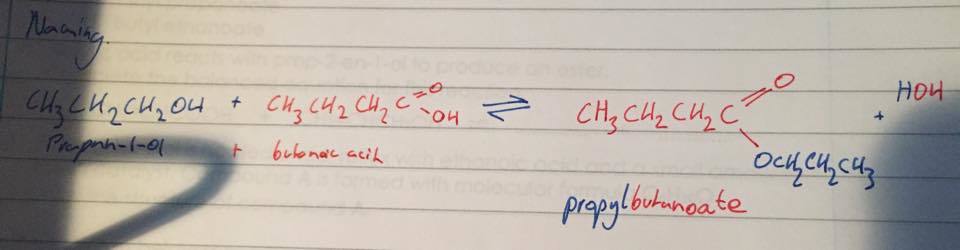 Naming.
CH₃CH₂CH₂OH + CH₃CH₂CH₂C=O -OH ⇌ CH₃CH₂CH₂C=O OCH₂CH₂CH₃ + HOH
+ butanoic acid
propylbutanoate